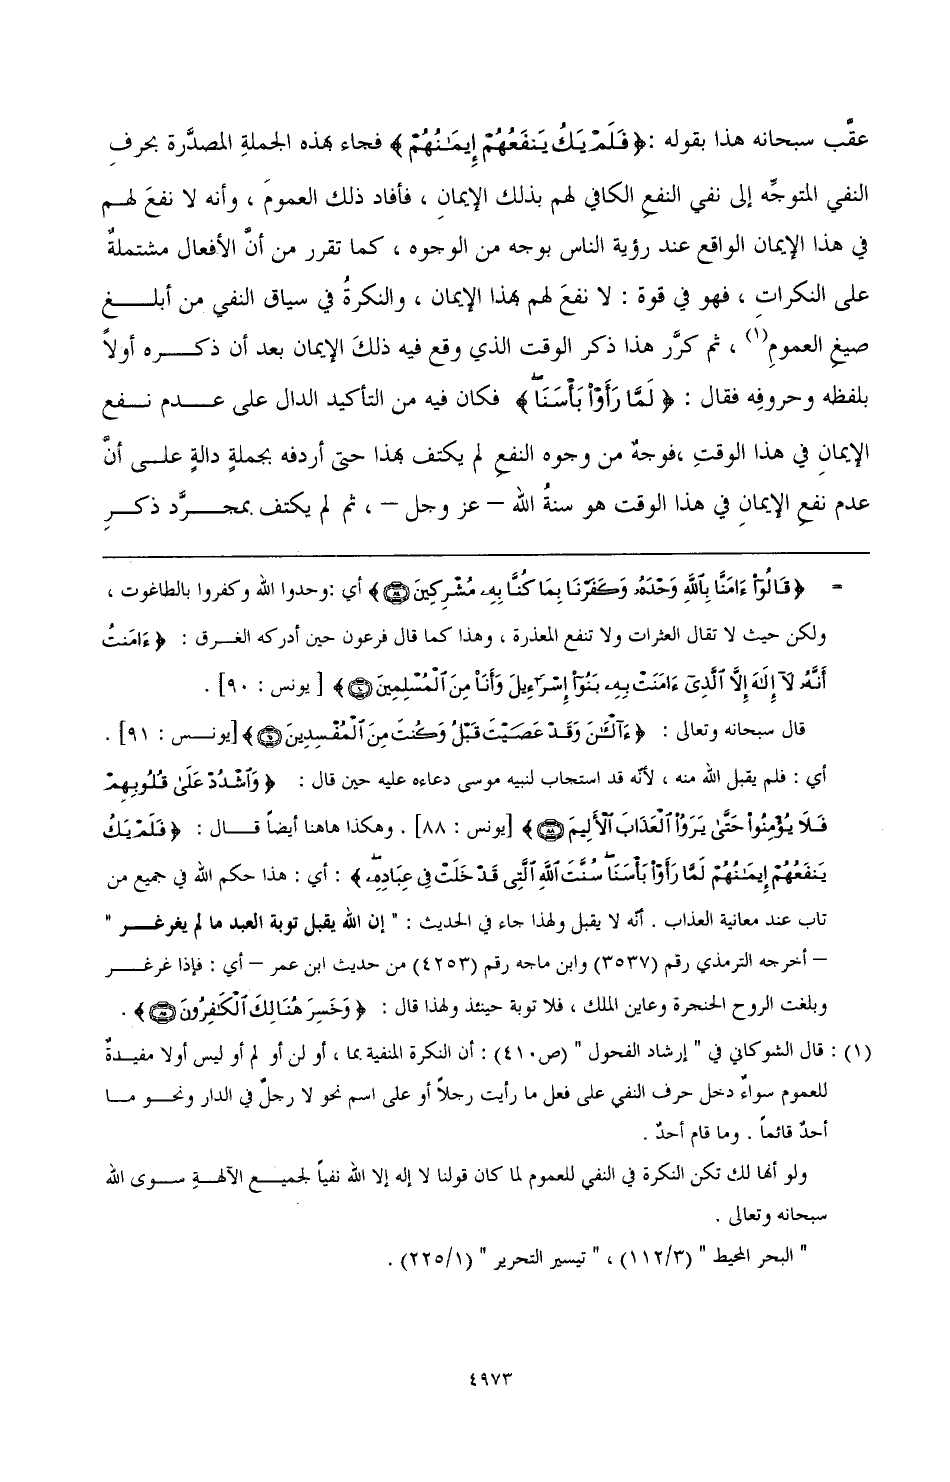 عقَّب سبحانه هذا بقوله :﴿ فَلَمْ يَكُ يَنفَعُهُمْ إِيمَـٰنُهُمْ ﴾ فجاء بهذه الجملةِ المصدَّرة بحرفِ
النفي المتوجِّه إلى نفي النفعِ الكافي لهم بذلك الإيمانِ ، فأفاد ذلك العمومَ ، وأنه لا نفعَ لهم
في هذا الإيمان الواقع عند رؤية الناس بوجه من الوجوه ، كما تقرر من أنَّ الأفعال مشتملةٌ
على النكراتِ ، فهو في قوة : لا نفعَ لهم بهذا الإيمان ، والنكرةُ في سياق النفي من أبلغ
صيغِ العمومِ(١) ، ثم كرَّر هذا ذكر الوقت الذي وقع فيه ذلكَ الإيمان بعد أن ذكره أولاً
بلفظه وحروفِه فقال : ﴿ لَمَّا رَأَوْا۟ بَأْسَنَا ۖ ﴾ فكان فيه من التأكيد الدال على عدم نفع
الإيمانِ في هذا الوقتِ ،فوجهٌ من وجوه النفعِ لم يكتف بهذا حتى أردفه بجملةٍ دالةٍ على أنَّ
عدم نفعِ الإيمانِ في هذا الوقت هو سنةُ الله – عز وجل – ، ثم لم يكتف بمجرَّد ذكرِ
= ﴿ قَالُوٓا۟ ءَامَنَّا بِٱللَّهِ وَحْدَهُۥ وَكَفَرْنَا بِمَا كُنَّا بِهِۦ مُشْرِكِينَ ﴾ أي :وحدوا الله وكفروا بالطاغوت ،
ولكن حيث لا تقال العثرات ولا تنفع المعذرة ، وهذا كما قال فرعون حين أدركه الغرق : ﴿ ءَامَنتُ
أَنَّهُۥ لَآ إِلَـٰهَ إِلَّا ٱلَّذِىٓ ءَامَنَتْ بِهِۦ بَنُوٓا۟ إِسْرَٰٓءِيلَ وَأَنَا۠ مِنَ ٱلْمُسْلِمِينَ ﴾ [ يونس : ٩٠] .
قال سبحانه وتعالى : ﴿ ءَآلْـَٔـٰنَ وَقَدْ عَصَيْتَ قَبْلُ وَكُنتَ مِنَ ٱلْمُفْسِدِينَ ﴾ [يونس : ٩١] .
أي : فلم يقبل الله منه ، لأنّه قد استجاب لنبيه موسى دعاءه عليه حين قال : ﴿ وَٱشْدُدْ عَلَىٰ قُلُوبِهِمْ
فَلَا يُؤْمِنُوا۟ حَتَّىٰ يَرَوُا۟ ٱلْعَذَابَ ٱلْأَلِيمَ ﴾ [يونس : ٨٨] . وهكذا هاهنا أيضاً قال : ﴿ فَلَمْ يَكُ
يَنفَعُهُمْ إِيمَـٰنُهُمْ لَمَّا رَأَوْا۟ بَأْسَنَا ۖ سُنَّتَ ٱللَّهِ ٱلَّتِى قَدْ خَلَتْ فِى عِبَادِهِۦ ۖ ﴾ : أي : هذا حكم الله في جميع من
تاب عند معانية العذاب . أنّه لا يقبل ولهذا جاء في الحديث : " إن الله يقبل توبة العبد ما لم يغرغر "
– أخرجه الترمذي رقم (٣٥٣٧) وابن ماجه رقم (٤٢٥٣) من حديث ابن عمر – أي : فإذا غرغر
وبلغت الروح الحنجرة وعاين الملك ، فلا توبة حينئذ ولهذا قال : ﴿ وَخَسِرَ هُنَالِكَ ٱلْكَـٰفِرُونَ ﴾ .
(١) : قال الشوكاني في " إرشاد الفحول " (ص٤١٠) : أن النكرة المنفية بما ، أو لن أو لم أو ليس أولا مفيدةٌ
للعموم سواءٌ دخل حرف النفي على فعل ما رأيت رجلاً أو على اسم نحو لا رجلٌ في الدار ونحو ما
أحدٌ قائماً . وما قام أحدٌ .
ولو أنها لك تكن النكرة في النفي للعموم لما كان قولنا لا إله إلا الله نفياً لجميع الآلهةِ سوى الله
سبحانه وتعالى .
" البحر المحيط " (١١٢/٣) ، " تيسير التحرير " (٢٢٥/١) .
٤٩٧٣